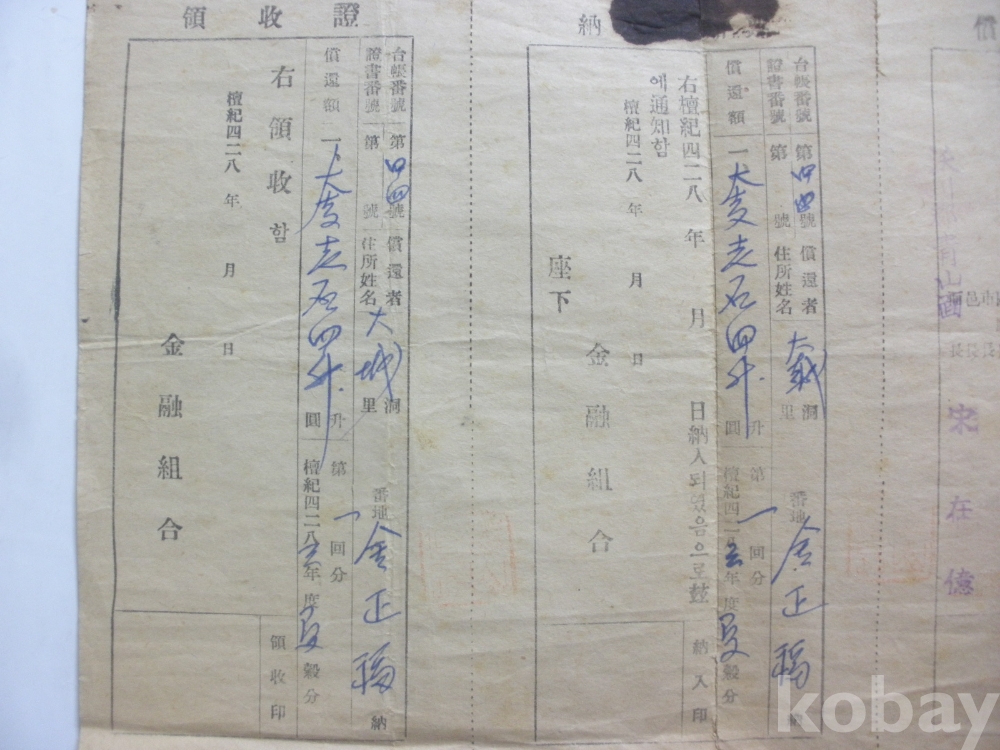 償
面邑
長
宋在億
納
台帳番號 第 四四 號 償還者 大城 洞
證書番號 第 號 住所姓名 里 番地 金正福 納
償還額 一 大麦 石四升 升 圓 第 一 回分 檀紀四二八 年度 夏穀分
右檀紀四二八 年 月 日納入되였음으로玆
에通知함
檀紀四二八 年 月 日
金融組合
座下
納入印
領收證
台帳番號 第 四四 號 償還者 大城 洞
證書番號 第 號 住所姓名 里 番地 金正福 納
償還額 一 大麦 石四升 升 圓 第 一 回分 檀紀四二八 年度 夏穀分
右領收함
檀紀四二八 年 月 日
金融組合
領收印
kobay